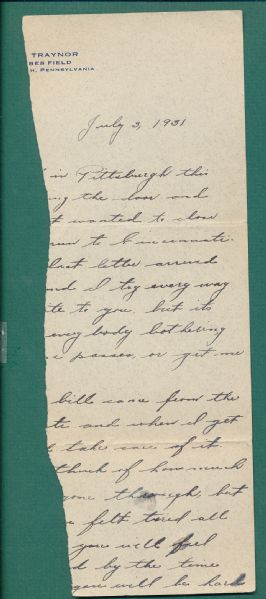 TRAYNOR
BES FIELD
H, PENNSYLVANIA
July 3, 1931
in Pittsburgh this
ng the loss and
t wanted to close
run to Cincinnati.
last letter arrived
nd I try every way
ite to you, but its
everybody bothering
passes, or get me
bills came from the
te and when I get
take care of it.
think of how much
gone through, but
felt tired all
you will feel
d by the time
you will be hard